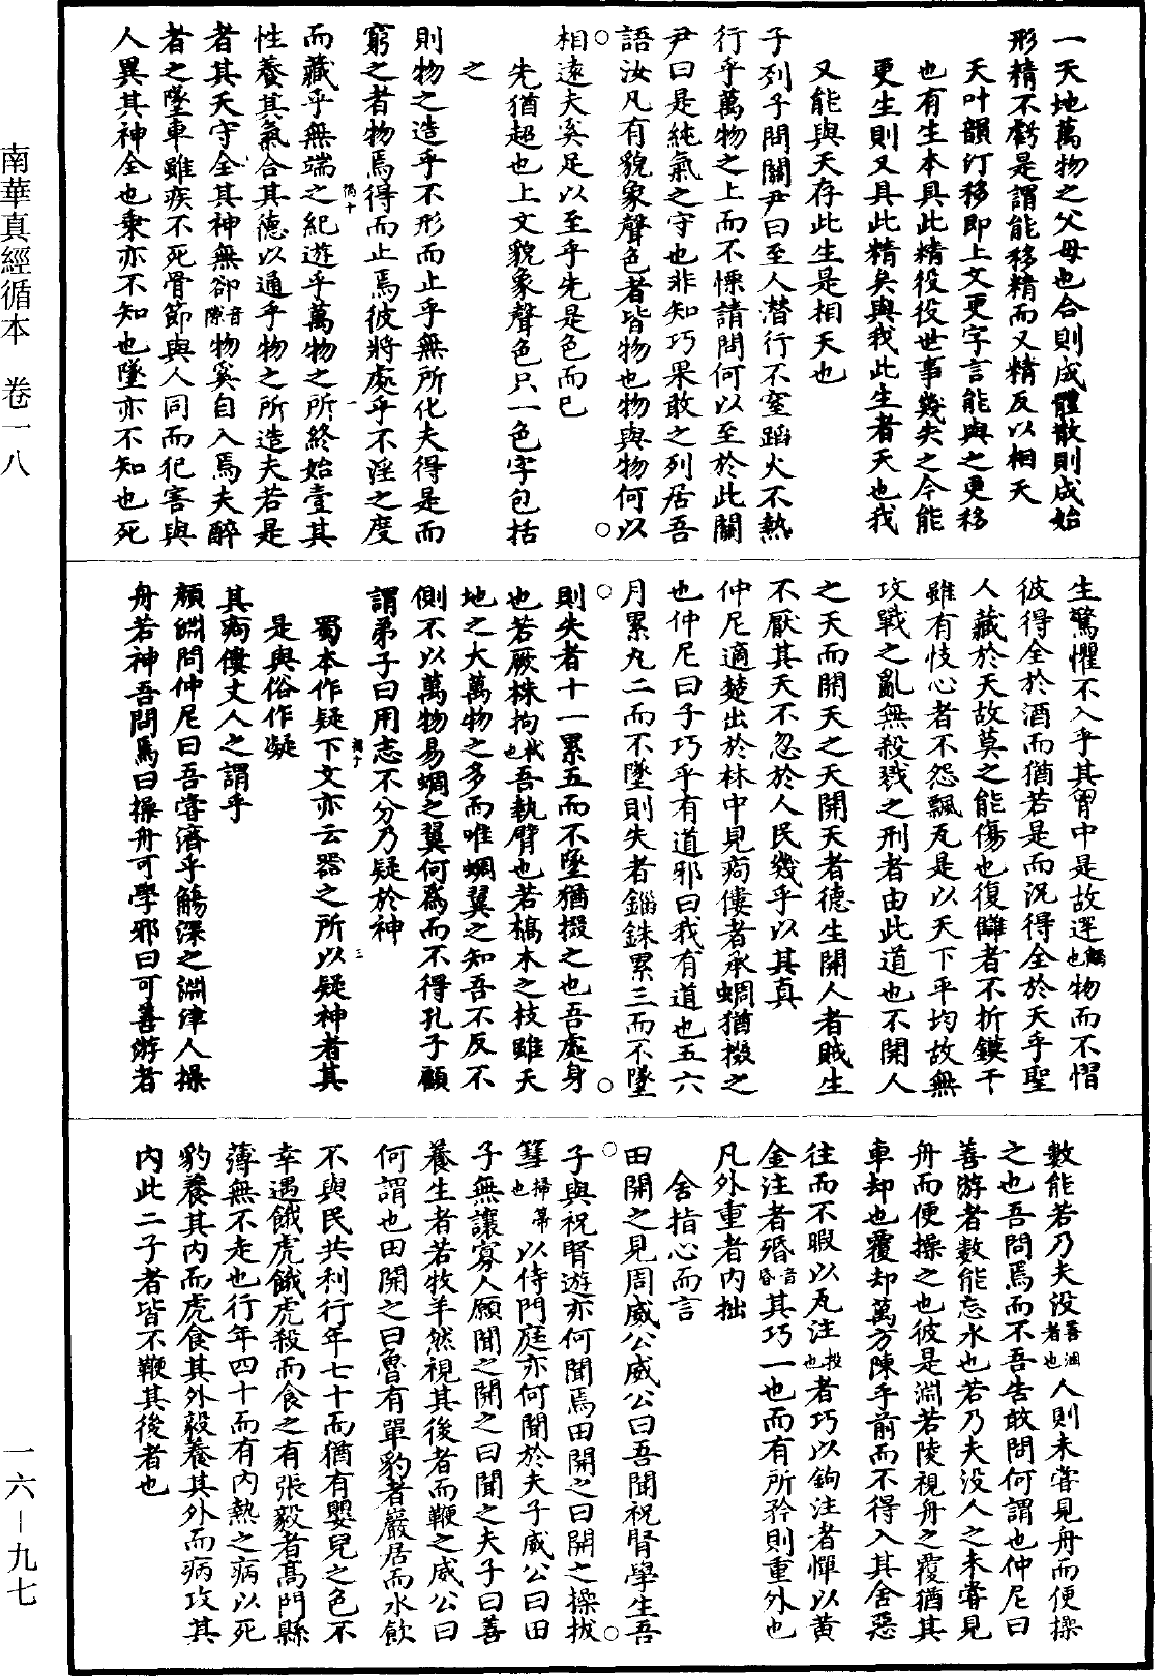 一天地萬物之父母也合則成體散則成始
形精不虧是謂能移精而又精反以相天
天叶韻汀移即上文更字言能與之更移
也有生本具此精役役世事幾失之今能
更生則又具此精矣與我此生者天也我
又能與天存此生是相天也
子列子問關尹曰至人潛行不窒蹈火不熱
行乎萬物之上而不慄請問何以至於此關
尹曰是純氣之守也非知巧果敢之列居吾
語汝凡有貌象聲色者皆物也物與物何以
相遠夫奚足以至乎先是色而已
先猶超也上文貌象聲色只一色字包括
之
則物之造乎不形而止乎無所化夫得是而
窮之者物焉得而止焉彼將處乎不淫之度
而藏乎無端之紀遊乎萬物之所終始壹其
性養其氣合其德以通乎物之所造夫若是
者其天守全其神無郤音隙物奚自入焉夫醉
者之墜車雖疾不死骨節與人同而犯害與
人異其神全也乘亦不知也墜亦不知也死
生驚懼不入乎其胷中是故遻觸也物而不慴
彼得全於酒而猶若是而況得全於天乎聖
人藏於天故莫之能傷也復讎者不折鏌干
雖有忮心者不怨飄瓦是以天下平均故無
攻戰之亂無殺戮之刑者由此道也不開人
之天而開天之天開天者德生開人者賊生
不厭其天不忽於人民幾乎以其真
仲尼適楚出於林中見痀僂者承蜩猶掇之
也仲尼曰子巧乎有道邪曰我有道也五六
月累丸二而不墜則失者錙銖累三而不墜
則失者十一累五而不墜猶掇之也吾處身
也若厥株拘杙也吾執臂也若槁木之枝雖天
地之大萬物之多而唯蜩翼之知吾不反不
側不以萬物易蜩之翼何為而不得孔子顧
謂弟子曰用志不分乃疑於神
蜀本作疑下文亦云器之所以疑神者其
是與俗作凝
其痀僂丈人之謂乎
顏淵問仲尼曰吾嘗濟乎觴深之淵津人操
舟若神吾問焉曰操舟可學邪曰可善游者
數能若乃夫没善泅者也人則未嘗見舟而便操
之也吾問焉而不吾告敢問何謂也仲尼曰
善游者數能忘水也若乃夫没人之未嘗見
舟而便操之也彼是淵若陵視舟之覆猶其
車却也覆却萬方陳乎前而不得入其舍惡
往而不暇以瓦注投也者巧以鉤注者憚以黄
金注者殙音昏其巧一也而有所矜則重外也
凡外重者内拙
舍指心而言
田開之見周威公威公曰吾聞祝腎學生吾
子與祝腎遊亦何聞焉田開之曰開之操拔
篲掃箒也以侍門庭亦何聞於夫子威公曰田
子無讓寡人願聞之開之曰聞之夫子曰善
養生者若牧羊然視其後者而鞭之威公曰
何謂也田開之曰魯有單豹者巖居而水飲
不與民共利行年七十而猶有嬰兒之色不
幸遇餓虎餓虎殺而食之有張毅者高門縣
薄無不走也行年四十而有内熱之病以死
豹養其内而虎食其外毅養其外而病攻其
内此二子者皆不鞭其後者也
南華真經循本 卷一八
一六—九七